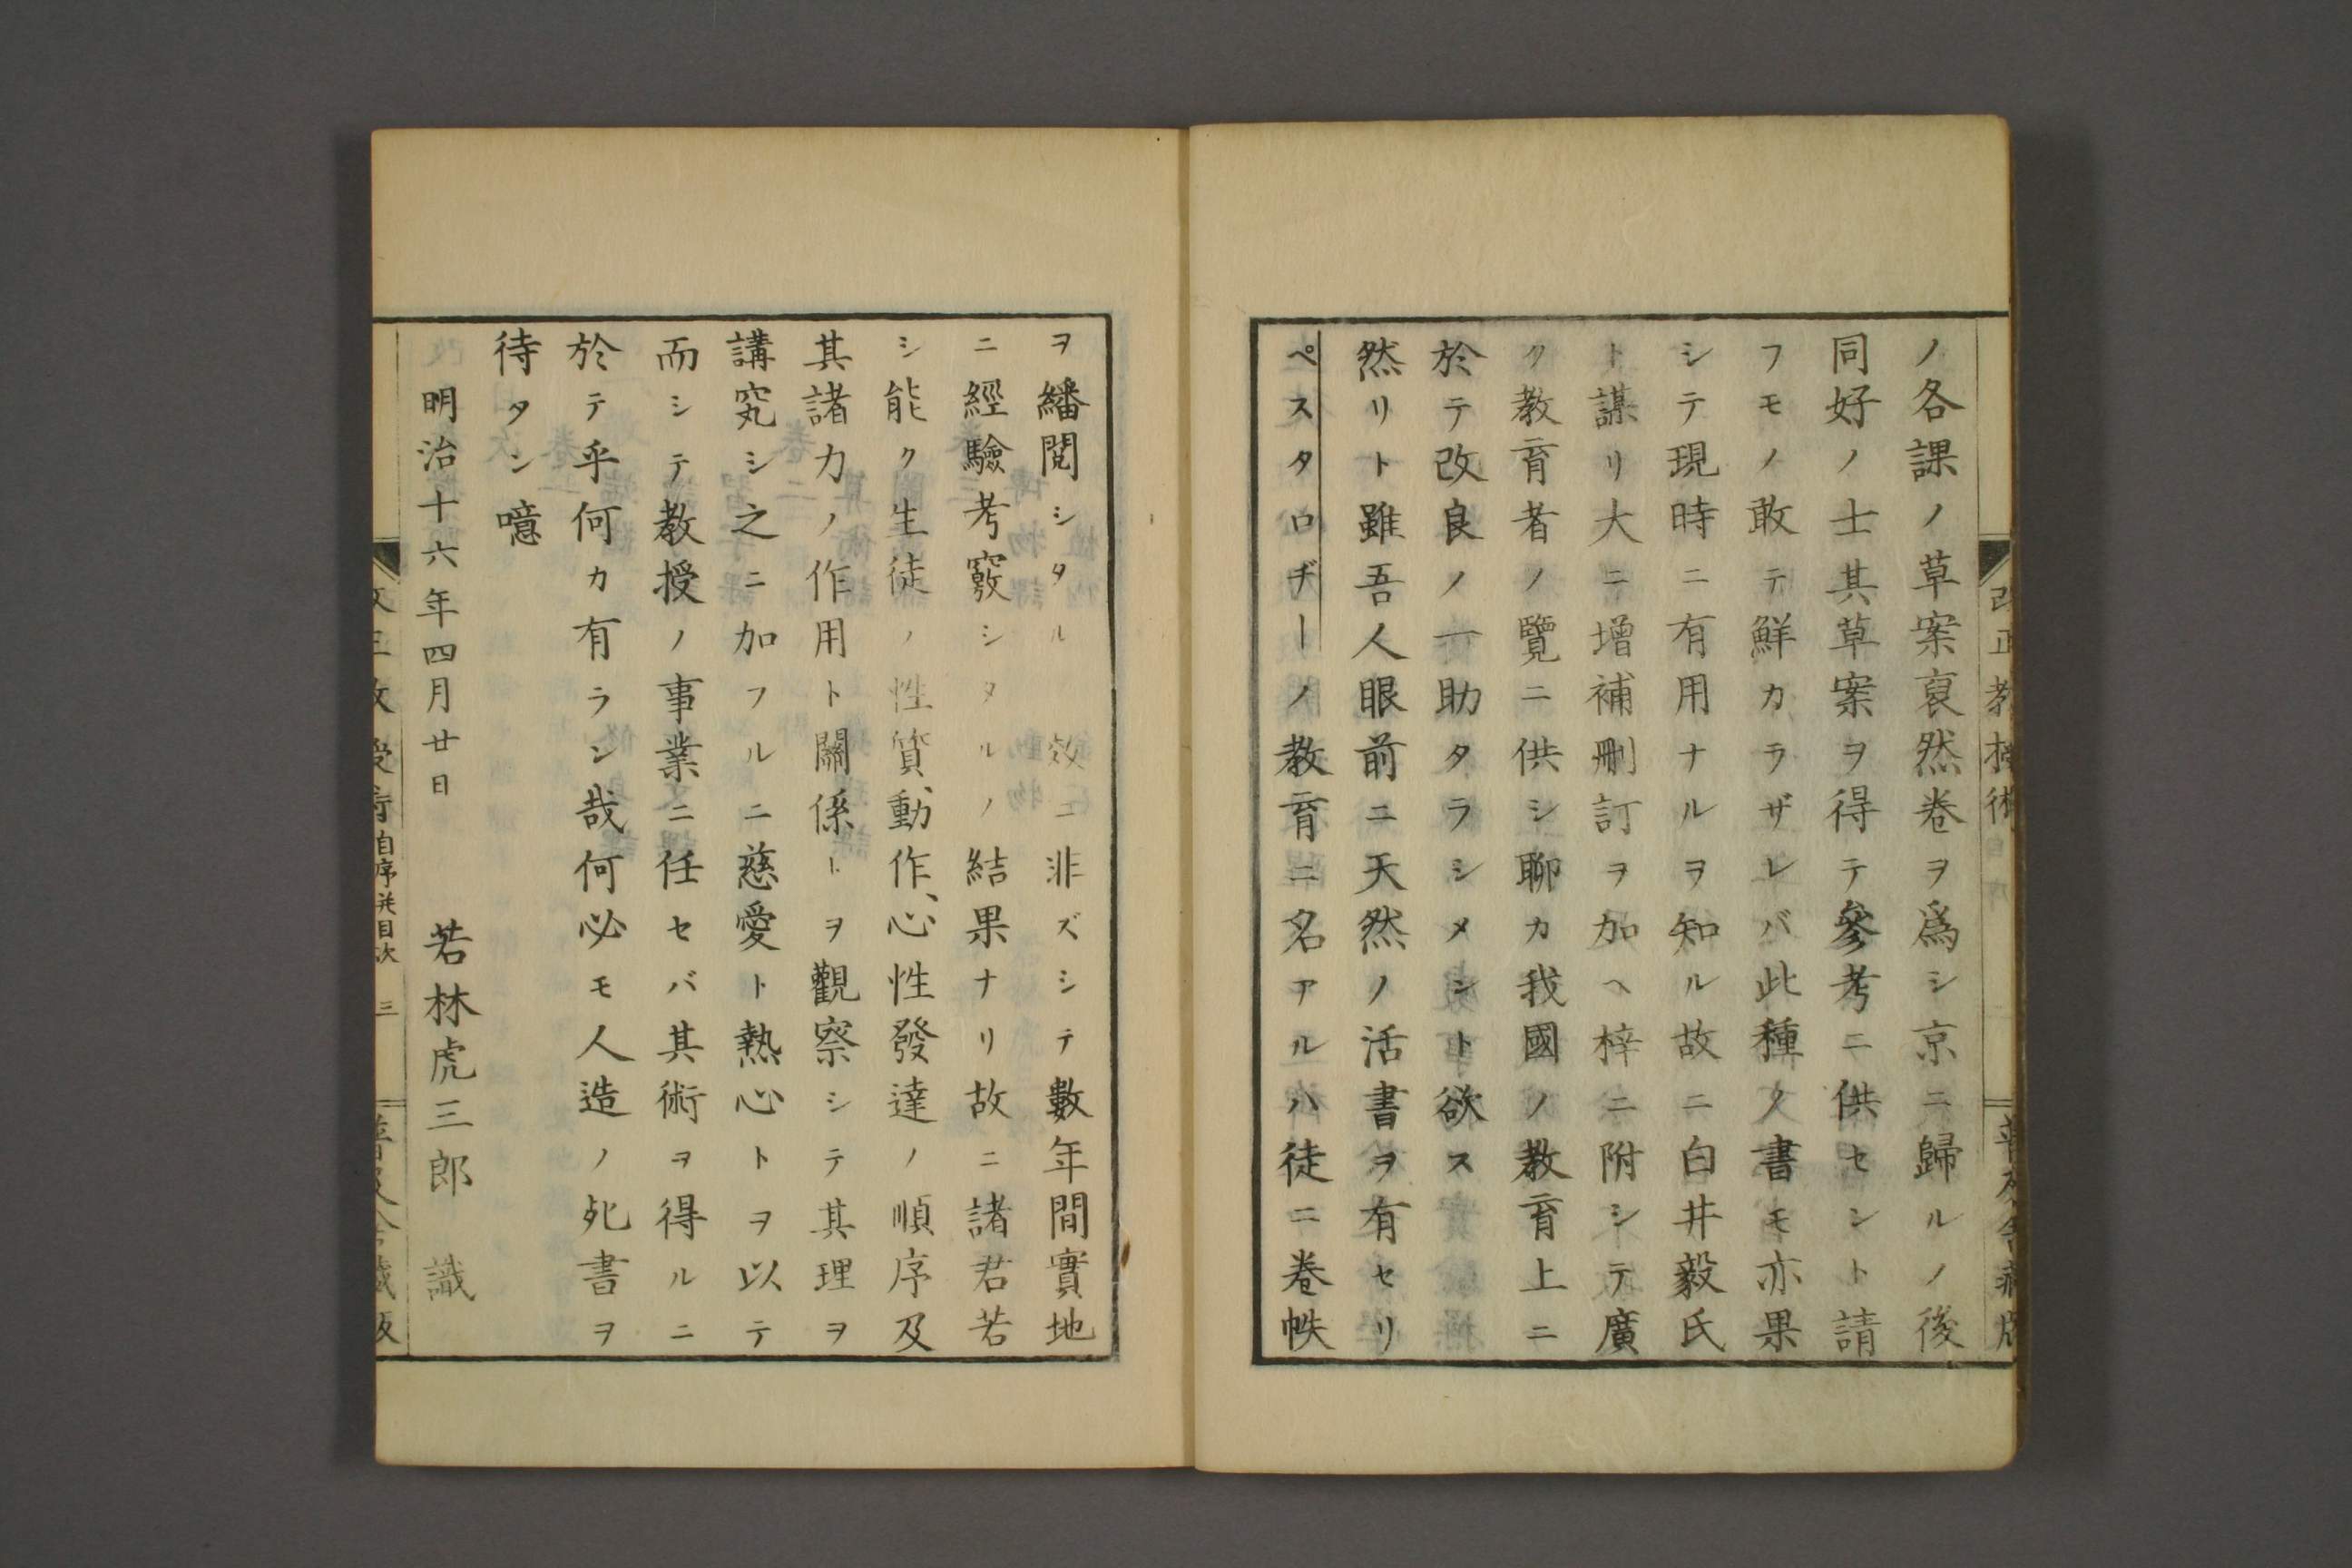 ノ各課ノ草案裒然卷ヲ爲シ京ニ歸ルノ後
同好ノ士其草案ヲ得テ參考ニ供セント請
フモノ敢テ鮮カラザレバ此種ノ書モ亦果
シテ現時ニ有用ナルヲ知ル故ニ白井毅氏
ト謀リ大ニ增補刪訂ヲ加ヘ梓ニ附シテ廣
ク教育者ノ覽ニ供シ聊カ我國ノ教育上ニ
於テ改良ノ一助タラシメント欲ス
然リト雖吾人眼前ニ天然ノ活書ヲ有セリ
ペスタロヂーノ教育ニ名アルハ徒ニ卷帙
ヲ繙閱シタル效ニ非ズシテ數年間實地
ニ經驗考竅シタルノ結果ナリ故ニ諸君若
シ能ク生徒ノ性質、動作、心性發達ノ順序及
其諸力ノ作用ト關係トヲ觀察シテ其理ヲ
講究シ之ニ加フルニ慈愛ト熱心トヲ以テ
而シテ教授ノ事業ニ任セバ其術ヲ得ルニ
於テ乎何カ有ラン哉何必モ人造ノ死書ヲ
待タン噫
明治十六年四月廿日 若林虎三郎 識
改正教授術自序幷目次 三 普及舍藏版